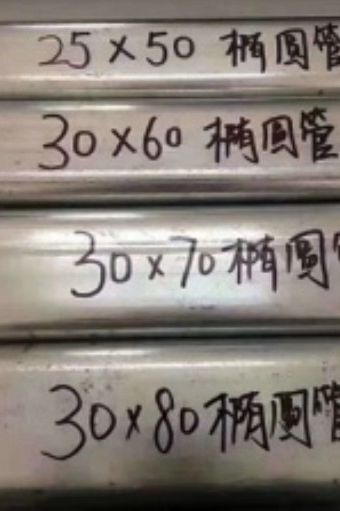 25×50 椭圆管
30×60 椭圆管
30×70 椭圆管
30×80 椭圆管